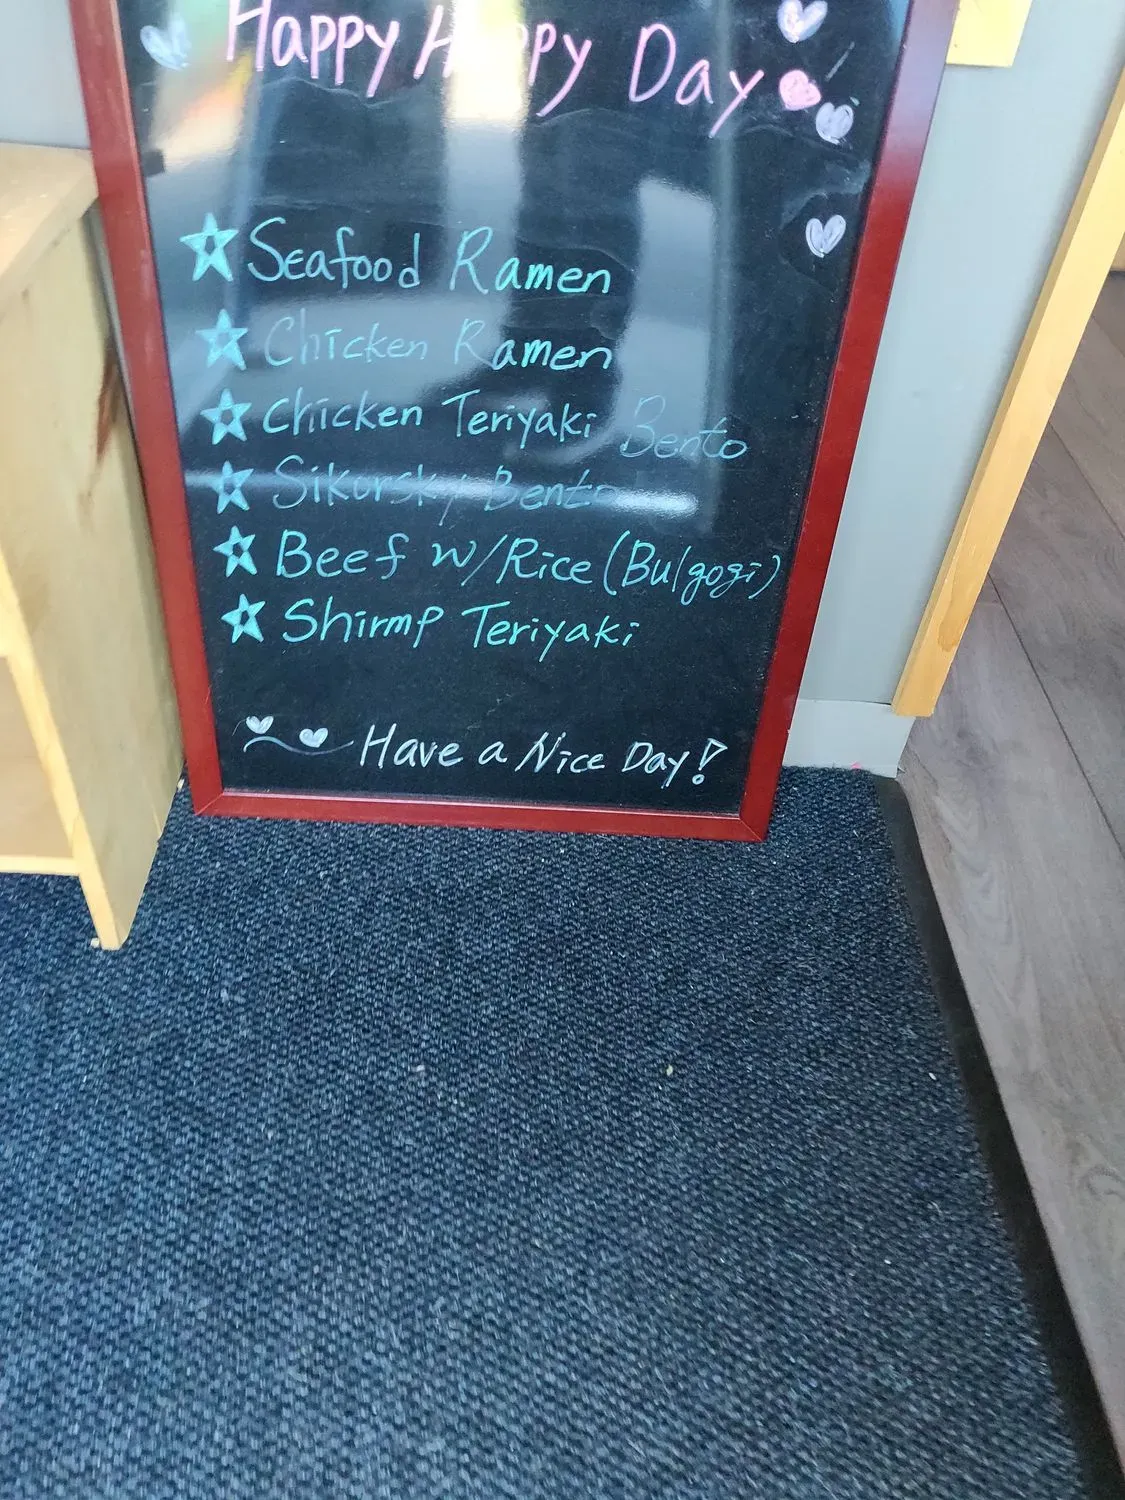 Happy Happy Day
Seafood Ramen
Chicken Ramen
Chicken Teriyaki Bento
Sikorsky Bento
Beef w/Rice (Bulgogi)
Shirmp Teriyaki
Have a Nice Day!